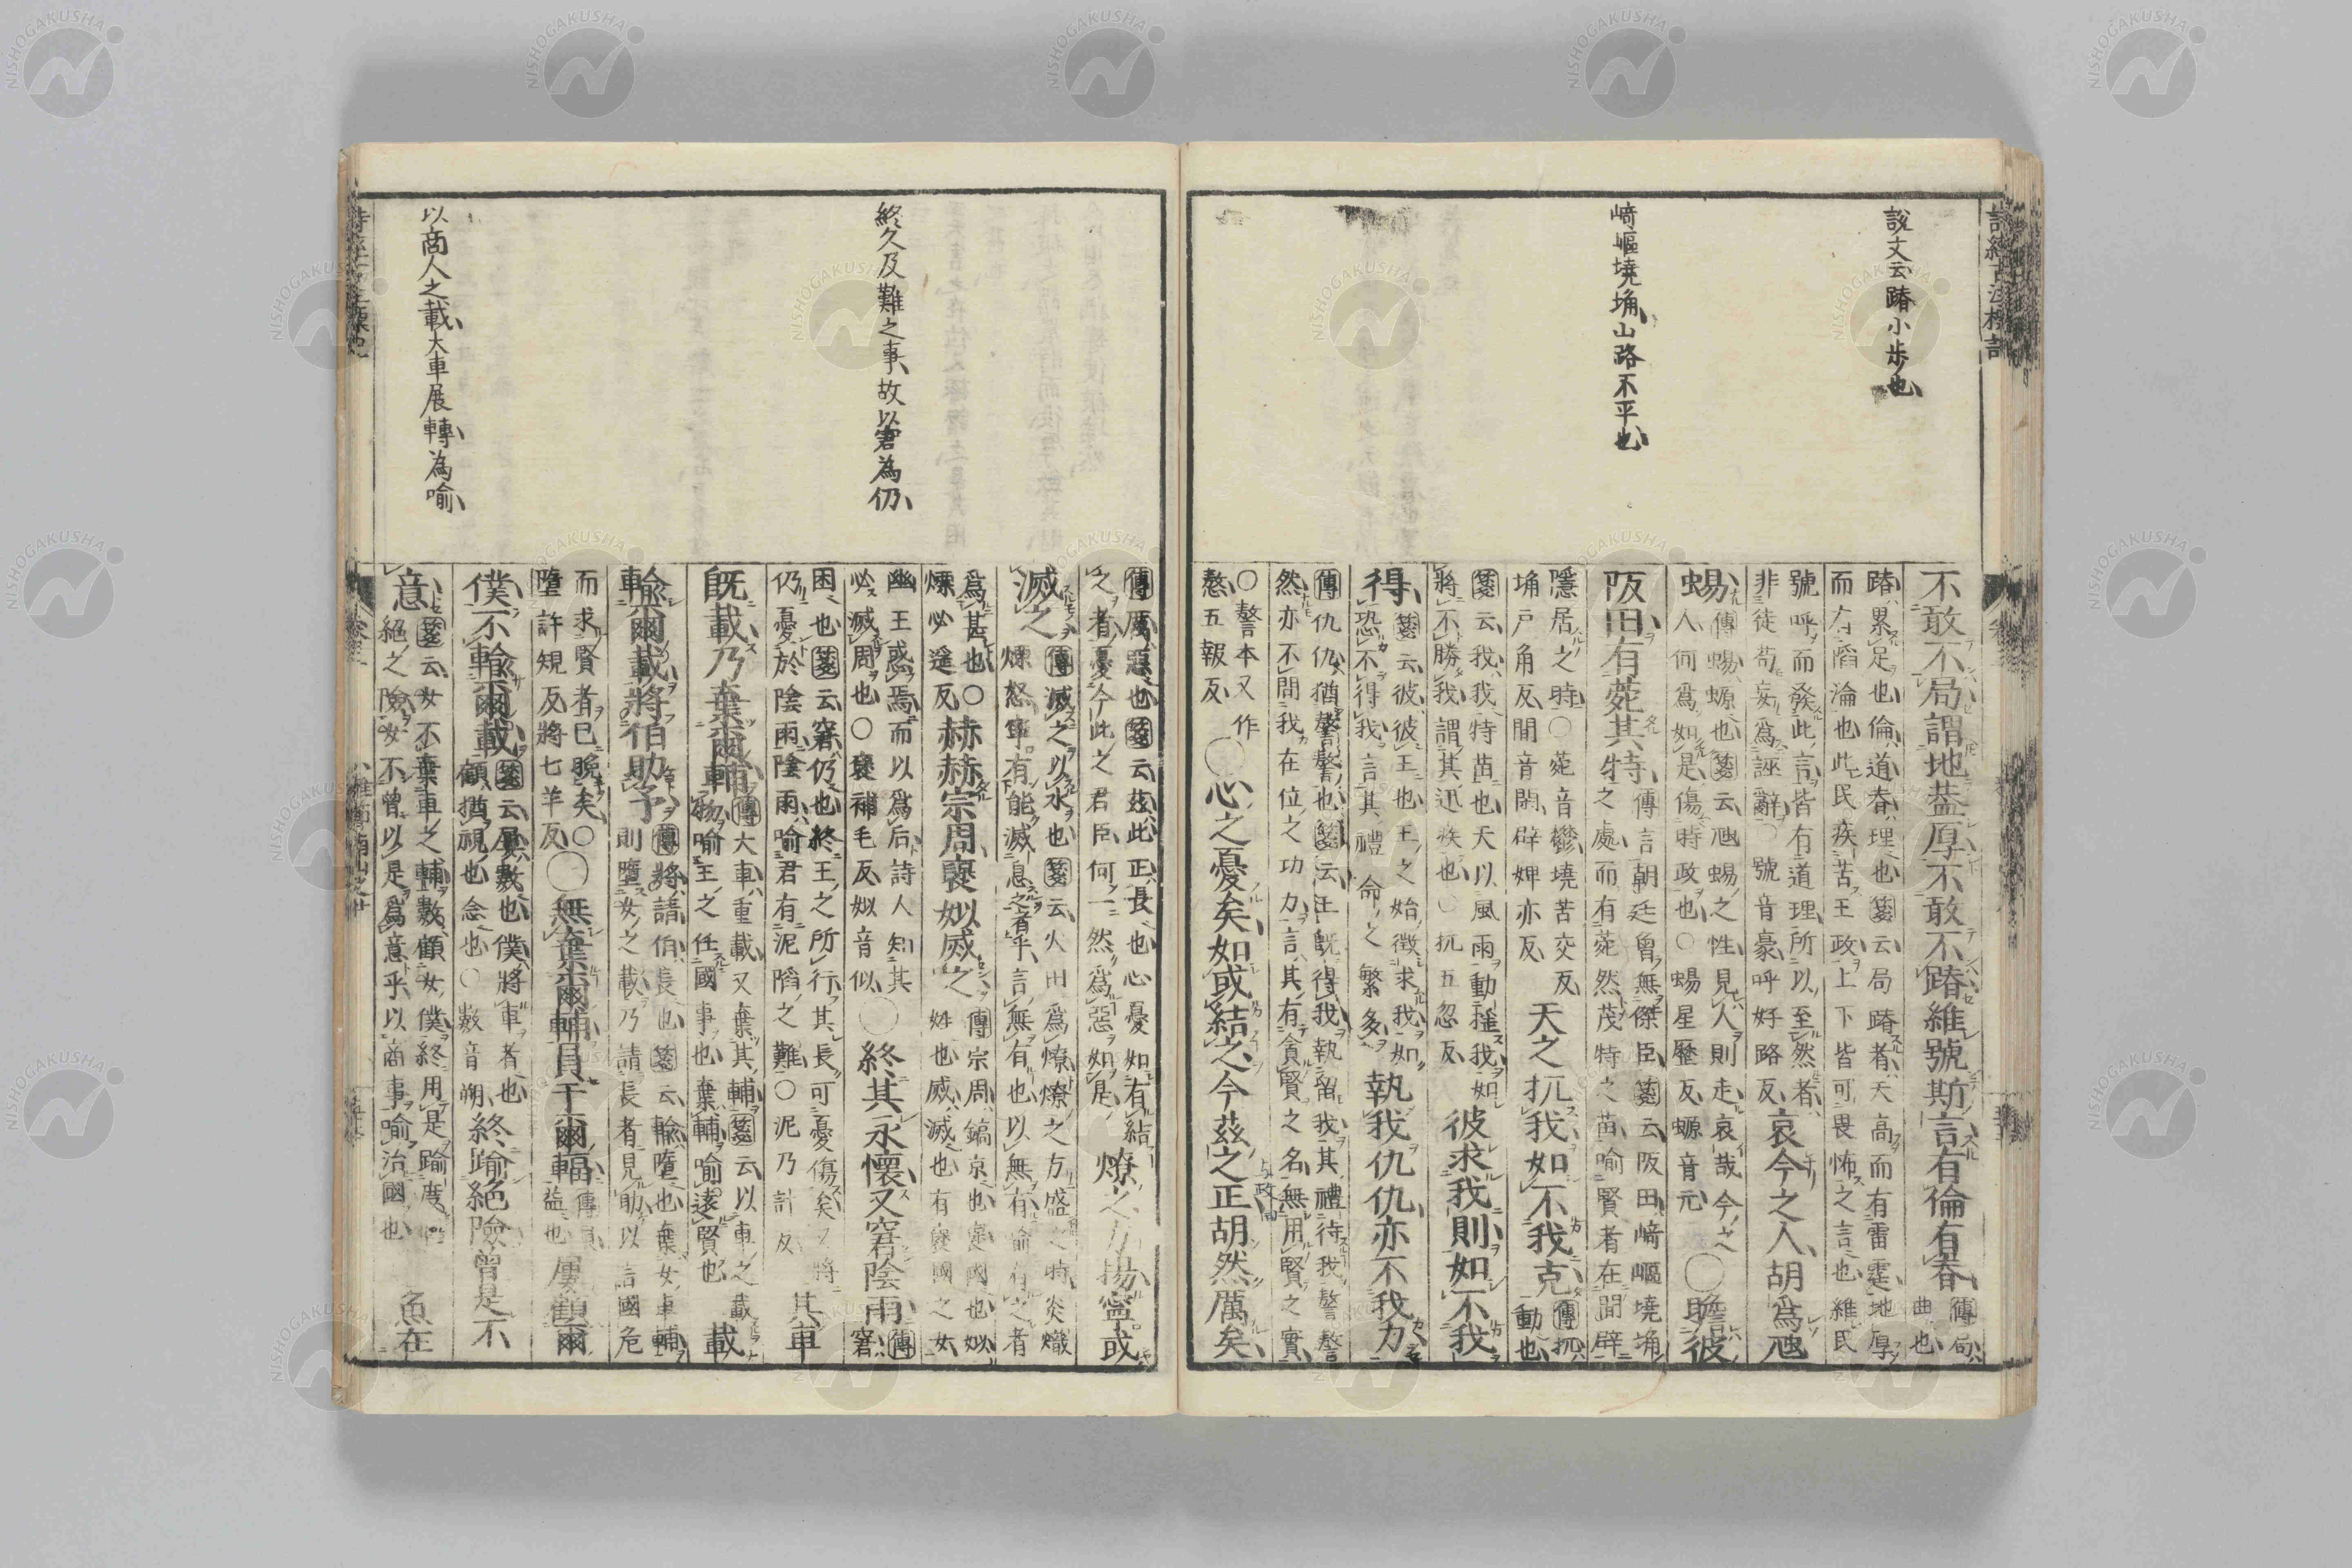 說文云蹐小歩也
崎嶇墝埆山路不平也
不敢不局謂地葢厚不敢不蹐維號斯言有倫有脊傳局曲也
蹐累足也倫道脊理也箋云局蹐者天高而有雷霆地厚
而有陷淪也此民疾苦王政上下皆可畏怖之言也維民
號呼而發此言皆有道理所以至然者
非徒苟妄爲誣辭○號音豪呼好路反
哀今之人胡爲虺
蜴傳蜴螈也箋云虺蜴之性見人則走哀哉今之
人何爲如是傷時政也○蜴星歷反螈音元
○瞻彼
阪田有菀其特傳言朝廷曾無傑臣箋云阪田崎嶇墝埆
之處而有菀然茂特之苗喻賢者在閒辟
隱居之時○菀音鬱墝苦交反
埆戸角反閒音閑辟婢亦反
天之扤我如不我克傳扤動也
箋云我我特苗也天以風雨動搖我如
將不勝我謂其迅疾也○扤五忽反
彼求我則如不我
得箋云彼彼王也王之始徵求我如
恐不得我言其禮命之繁多
執我仇仇亦不我力
傳仇仇猶謷謷也箋云王既得我執留我其禮待我謷謷
然亦不問我在位之功力言其有貪賢之名無用賢之實
○謷本又作
熬五報反
○心之憂矣如或結之今茲之正胡然厲矣
終久及難之事故以窘為仍
以商人之載大車展轉為喻
傳厲惡也箋云茲此正長也心憂如有結
之者憂今此之君臣何一然爲惡如是
燎之方揚寧或
滅之傳滅之以水也箋云火田爲燎燎之方盛之時炎熾
熛怒寧有能滅息之者乎言無有也以無有喻有之者
爲甚也○
熛必遥反
赫赫宗周褒姒烕之傳宗周鎬京也褒國也姒
姓也烕滅也有褒國之女
幽王惑焉而以爲后詩人知其
必滅周也○褒補毛反姒音似
○終其永懷又窘陰雨傳窘
困也箋云窘仍也終王之所行其長可憂傷矣又將
仍憂於陰雨陰雨喻君有泥陷之難○泥乃計反
其車
既載乃棄爾輔傳大車重載又棄其輔箋云以車之載
物喻王之任國事也棄輔喻遠賢也
載
輸爾載將伯助予傳將請伯長也箋云輸墮也棄女車輔
則墮女之載乃請長者見助以言國危
而求賢者已晩矣○
墮許規反將七羊反
○無棄爾輔員于爾輻傳員
益也
屢顧爾
僕不輸爾載箋云屢數也僕將車者也
顧猶視也念也○數音朔
終踰絶險曾是不
意箋云女不棄車之輔數顧女僕終用是踰度
絶之險女不曾以是爲意乎以商事喻治國也
魚在